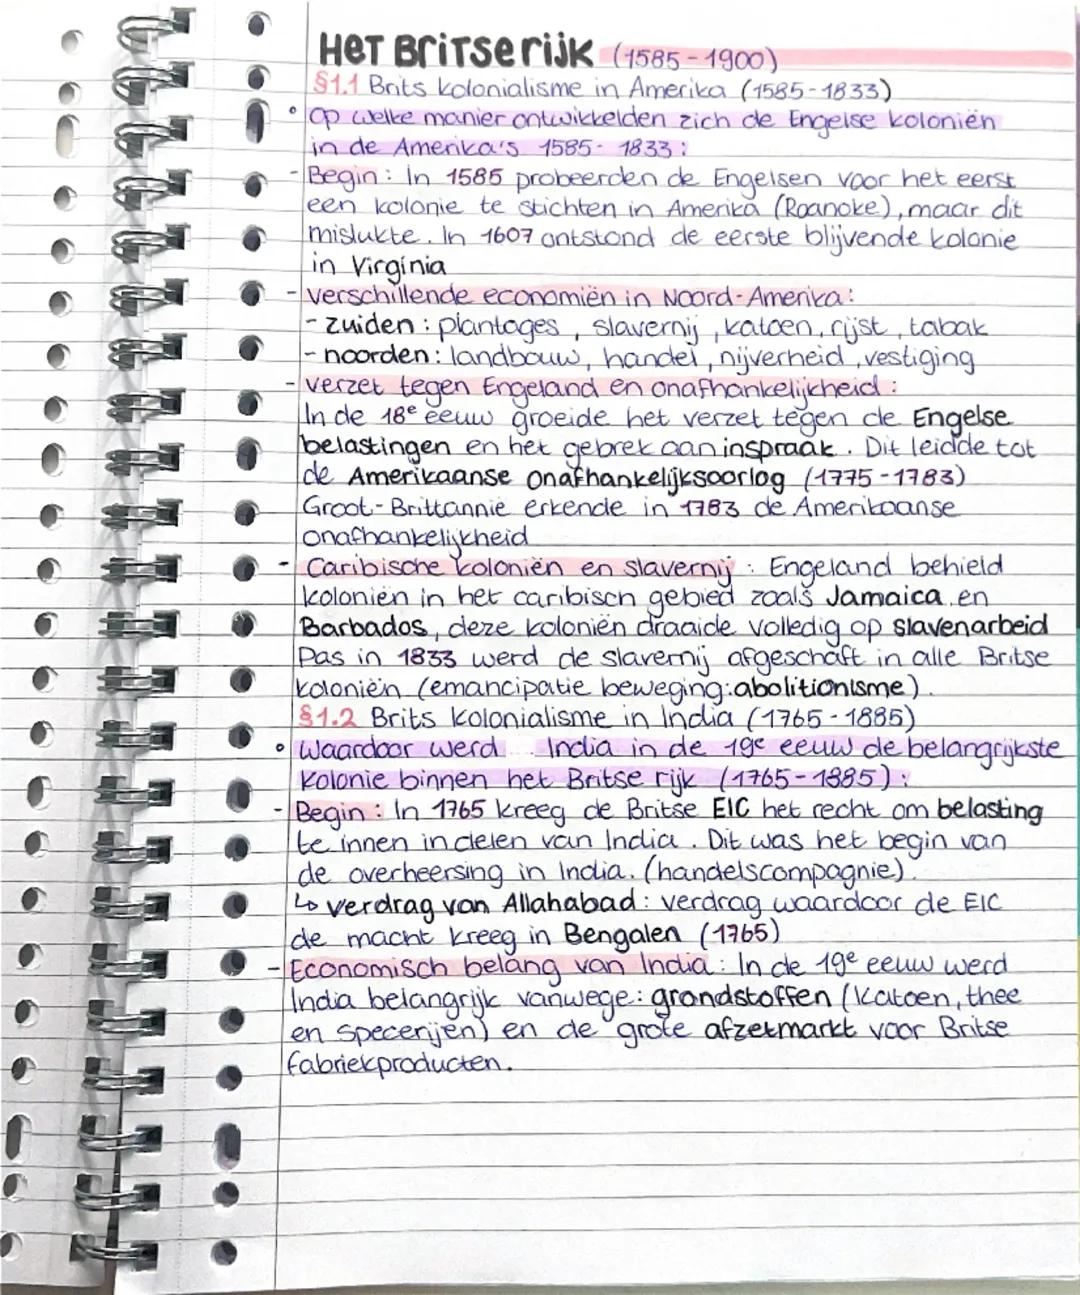 HET Britse rijk (1585-1900)
§1.1 Brits kolonialisme in Amerika (1585-1833)
° Op welke manier ontwikkelden zich de Engelse koloniën
in de Amerika's 1585- 1833:
- Begin: In 1585 probeerden de Engelsen voor het eerst
een kolonie te stichten in Amerika (Roanoke), maar dit
mislukte. In 1607 ontstond de eerste blijvende kolonie
in Virginia
- verschillende economiën in Noord-Amerika:
- zuiden: plantages, slavernij, katoen, rijst, tabak
- noorden: landbouw, handel, nijverheid, vestiging
- verzet tegen Engeland en onafhankelijkheid:
In de 18e eeuw groeide het verzet tegen de Engelse
belastingen en het gebrek aan inspraak. Dit leidde tot
de Amerikaanse onafhankelijksoorlog (1775-1783)
Groot-Brittannië erkende in 1783 de Amerikaanse
onafhankelijkheid
- Caribische koloniën en slavernij: Engeland behield
koloniën in het caribisch gebied zoals Jamaica en
Barbados, deze koloniën draaide volledig op slavenarbeid
Pas in 1833 werd de slavernij afgeschaft in alle Britse
koloniën (emancipatie beweging: abolitionisme).
§1.2 Brits kolonialisme in India (1765-1885)
° Waardoor werd India in de 19e eeuw de belangrijkste
kolonie binnen het Britse rijk (1765-1885):
- Begin: In 1765 kreeg de Britse EIC het recht om belasting
te innen in delen van India. Dit was het begin van
de overheersing in India. (handelscompagnie).
↳ verdrag van Allahabad: verdrag waardoor de EIC
de macht kreeg in Bengalen (1765)
- Economisch belang van India: In de 19e eeuw werd
India belangrijk vanwege: grondstoffen (katoen, thee
en specerijen) en de grote afzetmarkt voor Britse
fabriekproducten.